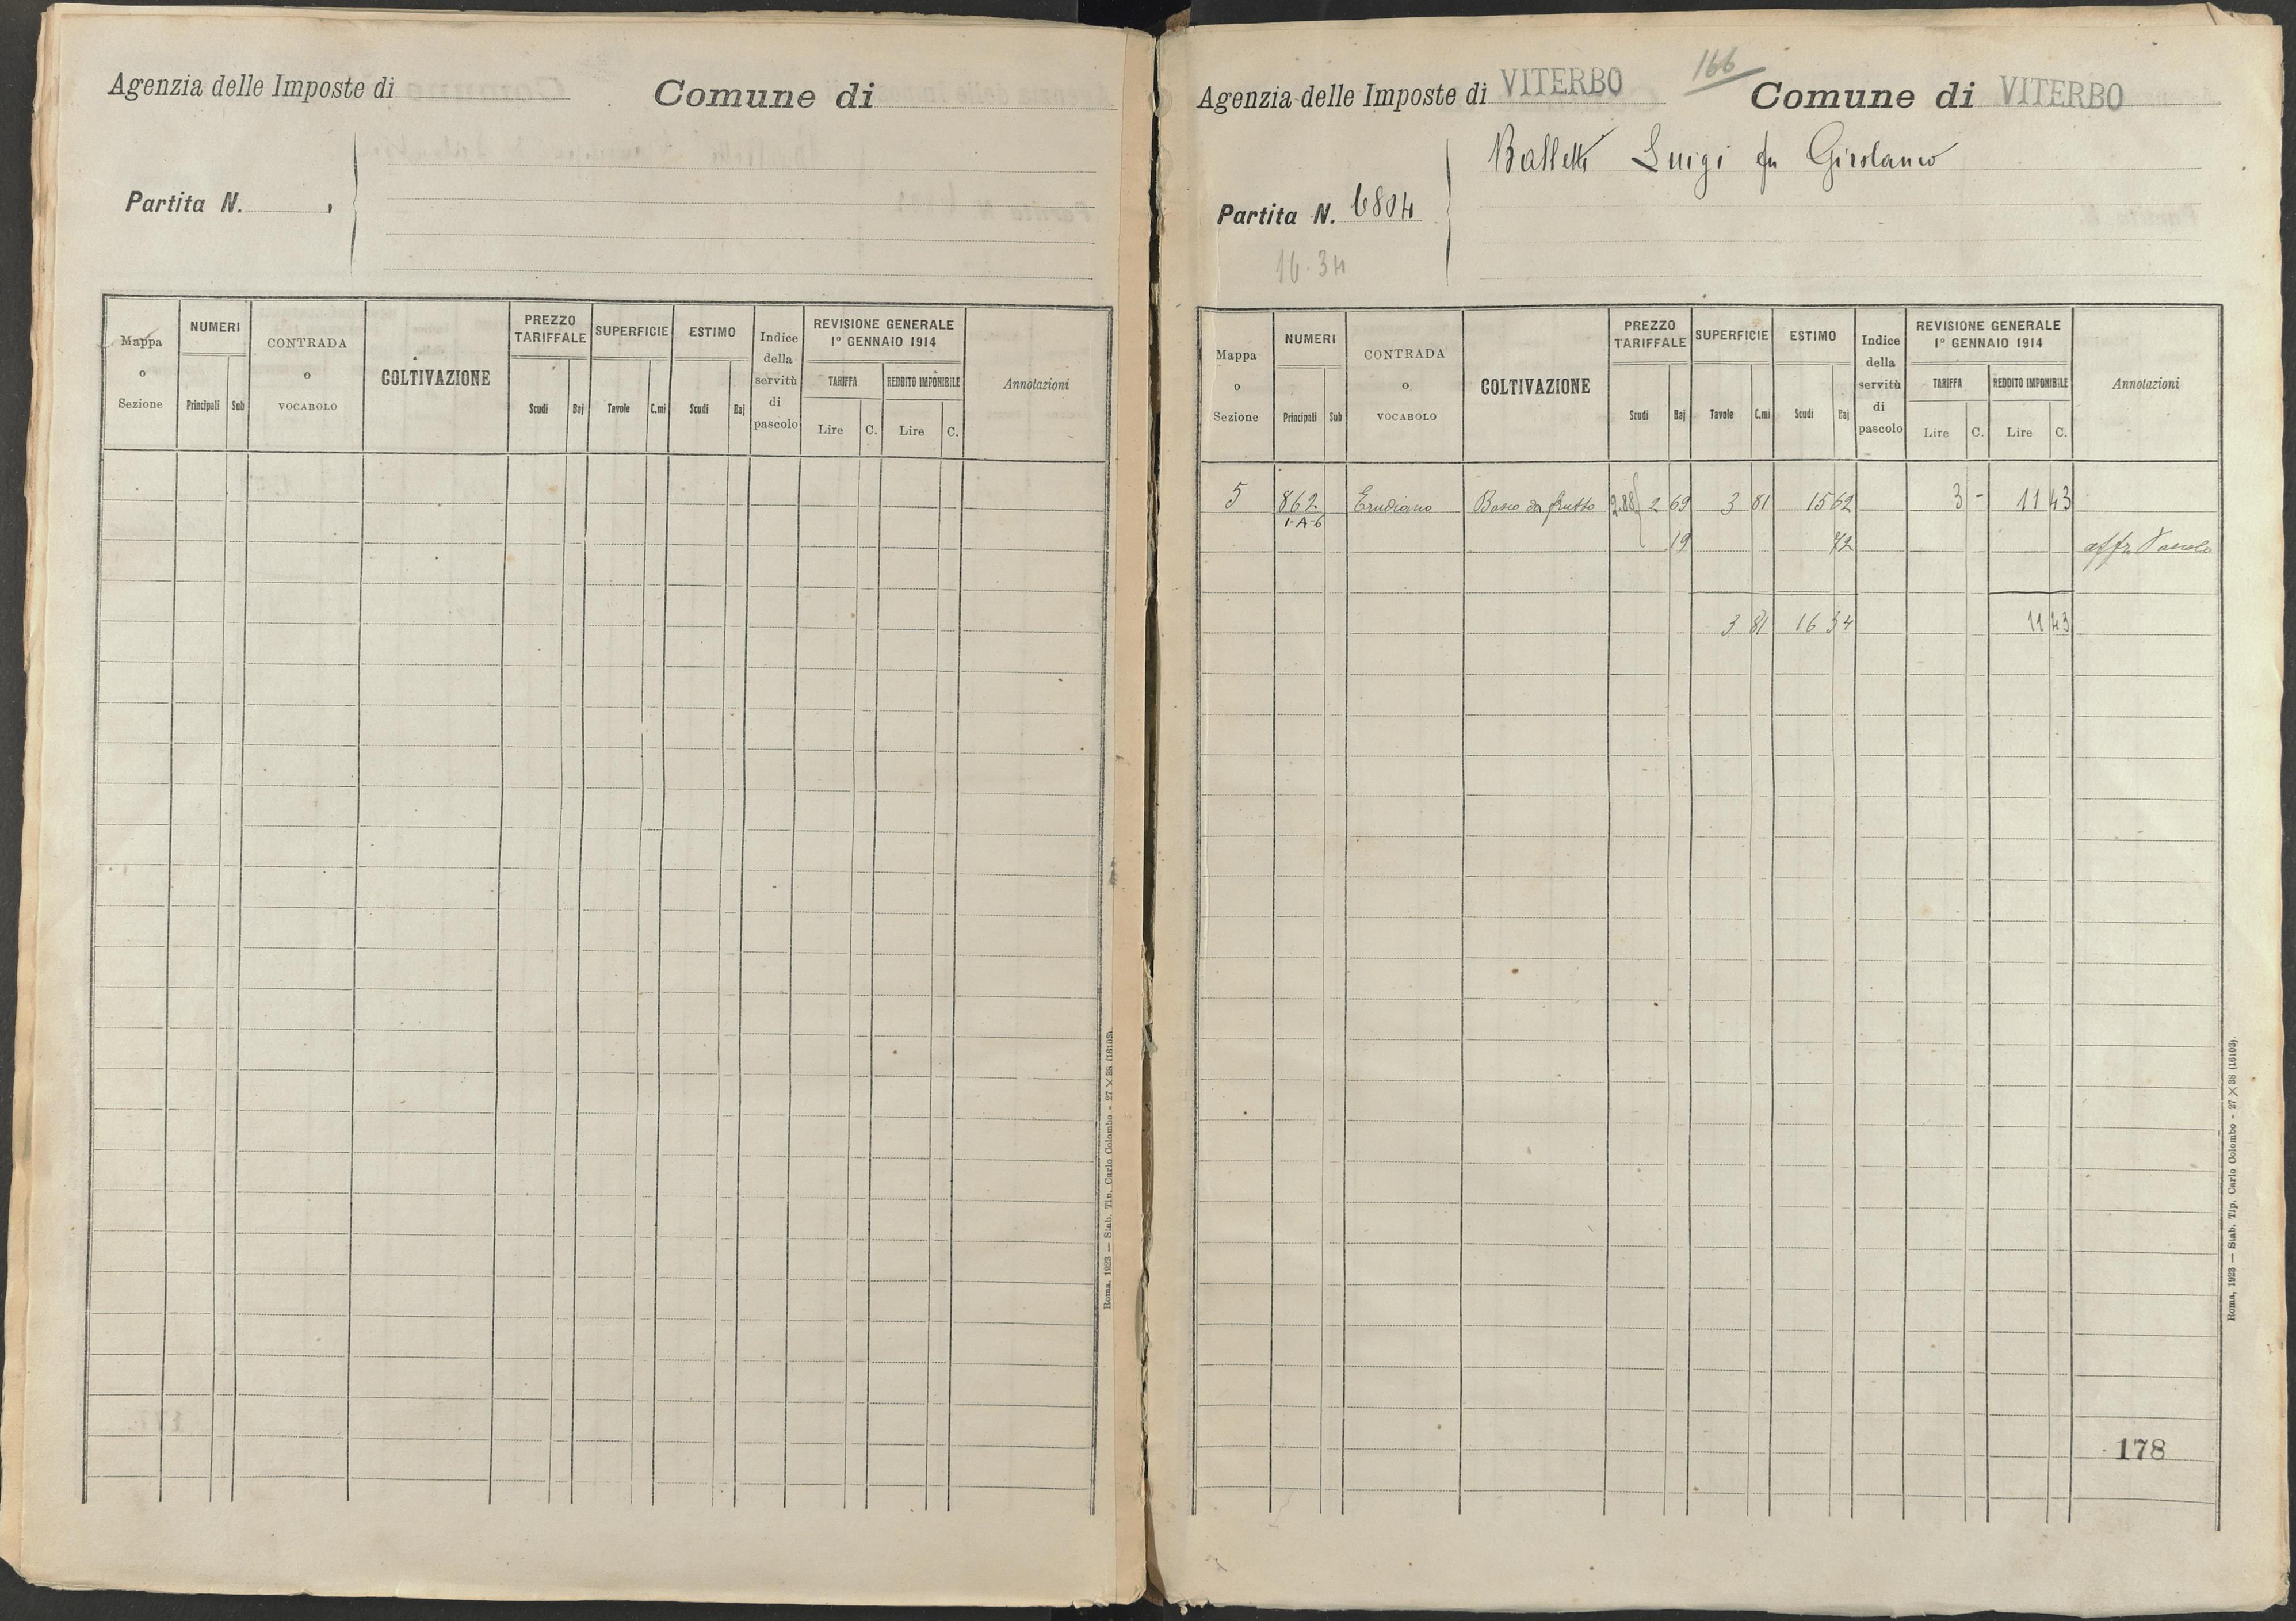 Agenzia delle Imposte di Comune di
Partita N.
Mappa o Sezione NUMERI Principali Sub CONTRADA o VOCABOLO COLTIVAZIONE PREZZO TARIFFALE Scudi Baj SUPERFICIE Tavole C.mi ESTIMO Scudi Baj Indice della servitù di pascolo REVISIONE GENERALE 1º GENNAIO 1914 TARIFFA Lire C. REDDITO IMPONIBILE Lire C. Annotazioni
Roma, 1923 — Stab. Tip. Carlo Colombo - 27 × 38 (16103).
166
Agenzia delle Imposte di VITERBO Comune di VITERBO
Balletti Luigi fu Girolamo
Partita N. 6804
16.34
Mappa o Sezione NUMERI Principali Sub CONTRADA o VOCABOLO COLTIVAZIONE PREZZO TARIFFALE Scudi Baj SUPERFICIE Tavole C.mi ESTIMO Scudi Baj Indice della servitù di pascolo REVISIONE GENERALE 1º GENNAIO 1914 TARIFFA Lire C. REDDITO IMPONIBILE Lire C. Annotazioni
5 862 da frutto 2.88 2 69 3 81 15 62 3 - 11 43
1-A-6
19 72 affr.
3 81 16 34 11 43
178
Roma, 1923 — Stab. Tip. Carlo Colombo - 27 × 38 (16103).